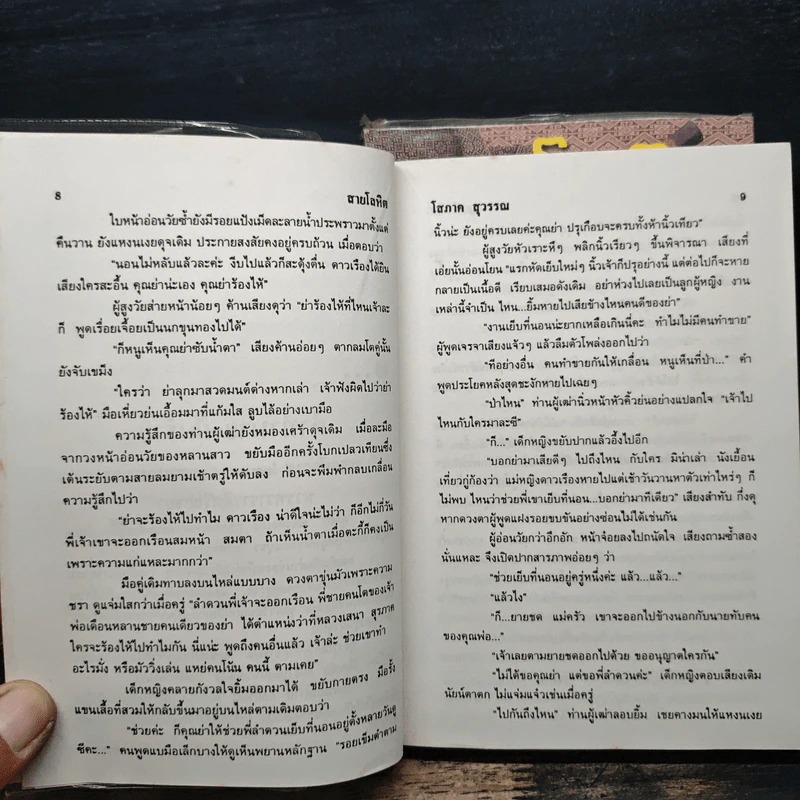 8
สายโลหิต
ใบหน้าอ่อนวัยซ้ำยังมีรอยแป้งเม็ดละลายน้ำประพราวมาตั้งแต่
คืนวาน ยังแหงนเงยดุจเดิม ประกายสงสัยคงอยู่ครบถ้วน เมื่อตอบว่า
“นอนไม่หลับแล้วละค่ะ งีบไปแล้วก็สะดุ้งตื่น ดาวเรืองได้ยิน
เสียงใครสะอื้น คุณย่าน่ะเอง คุณย่าร้องไห้”
ผู้สูงวัยส่ายหน้าน้อยๆ ค้านเสียงดุว่า “ย่าร้องไห้ที่ไหนเจ้าละ
ก็ พูดเรื่อยเจื้อยเป็นนกขุนทองไปได้”
“ก็หนูเห็นคุณย่าซับน้ำตา” เสียงค้านอ่อยๆ ตากลมโตคู่นั้น
ยังจับเขม็ง
“ใครว่า ย่าลุกมาสวดมนต์ต่างหากเล่า เจ้าฟังผิดไปว่าย่า
ร้องไห้” มือเหี่ยวย่นเอื้อมมาที่แก้มใส ลูบไล้อย่างเบามือ
ความรู้สึกของท่านผู้เฒ่ายังหมองเศร้าดุจเดิม เมื่อละมือ
จากวงหน้าอ่อนวัยของหลานสาว ขยับมืออีกครั้งโบกเปลวเทียนซึ่ง
เต้นระริกตามสายลมยามเช้าตรู่ให้ดับลง ก่อนจะพึมพำกลบเกลื่อน
ความรู้สึกไปว่า
“ย่าจะร้องไห้ไปทำไม ดาวเรือง น่าดีใจน่ะไม่ว่า ก็อีกไม่กี่วัน
พี่เจ้าเขาจะออกเรือนสมหน้า สมตา ถ้าเห็นน้ำตาเมื่อตะกี้ก็คงเป็น
เพราะความแก่แหละมากกว่า”
มือคู่เดิมทาบลงบนไหล่แบบบาง ดวงตาขุ่นมัวเพราะความ
ชรา ดูแจ่มใสกว่าเมื่อครู่ “ลำดวนพี่เจ้าจะออกเรือน พี่ชายคนโตของเจ้า
พ่อเดือนหลานชายคนเดียวของย่า ได้ตำแหน่งว่าที่หลวงเสนา สุรภาค
ใครจะร้องไห้ไปทำไมกัน นี่แน่ะ พูดถึงคนอื่นแล้ว เจ้าล่ะ ช่วยเขาทำ
อะไรมั่ง หรือมัววิ่งเล่น แหย่คนโน้น คนนี้ ตามเคย”
เด็กหญิงคลายกังวลใจยิ้มออกมาได้ ขยับกายตรง มือรั้ง
แขนเสื้อที่สวมให้กลับขึ้นมาอยู่บนไหล่ตามเดิมตอบว่า
“ช่วยค่ะ ก็คุณย่าให้ช่วยพี่ลำดวนเย็บที่นอนอยู่ตั้งหลายวันดู
ซีคะ...” คนพูดแบมือเล็กบางให้ดูเห็นพยานหลักฐาน “รอยเข็มตำตาม
โสภาค สุวรรณ
9
นิ้วน่ะ ยังอยู่ครบเลยค่ะคุณย่า ปรุเกือบจะครบทั้งห้านิ้วเทียว”
ผู้สูงวัยหัวเราะหึๆ พลิกนิ้วเรียวๆ ขึ้นพิจารณา เสียงที่
เอ่ยนั้นอ่อนโยน “แรกหัดเย็บใหม่ๆ นิ้วเจ้าก็ปรุอย่างนี้ แต่ต่อไปก็จะหาย
กลายเป็นเนื้อดี เรียบเสมอดังเดิม อย่าห่วงไปเลยเป็นลูกผู้หญิง งาน
เหล่านี้จำเป็น ไหน...ยิ้มหายไปเสียข้างไหนคนดีของย่า”
“งานเย็บที่นอนน่ะยากเหลือเกินนี่คะ ทำไมไม่มีคนทำขาย”
ผู้พูดเจรจาเสียงแจ้วๆ แล้วลืมตัวโพล่งออกไปว่า
“ทีอย่างอื่น คนทำขายกันให้เกลื่อน หนูเห็นที่ป่า...” คำ
พูดประโยคหลังสุดชะงักหายไปเฉยๆ
“ป่าไหน” ท่านผู้เฒ่านิ่วหน้าหัวคิ้วย่นอย่างแปลกใจ “เจ้าไป
ไหนกับใครมาละซี”
“ก็...” เด็กหญิงขยับปากแล้วอึ้งไปอีก
“บอกย่ามาเสียดีๆ ไปถึงไหน กับใคร มิน่าเล่า นังเยื้อน
เที่ยวกู่ก้องว่า แม่หญิงดาวเรืองหายไปแต่เช้าวันวานหาตัวเท่าไหร่ๆ ก็
ไม่พบ ไหนว่าช่วยพี่เขาเย็บที่นอน...บอกย่ามาทีเดียว” เสียงสำทับ กึ่งดุ
หากดวงตาผู้พูดแฝงรอยขบขันอย่างซ่อนไม่ได้เช่นกัน
ผู้อ่อนวัยกว่าอึกอัก หน้าจ๋อยลงไปถนัดใจ เสียงถามซ้ำสอง
นั่นแหละ จึงเปิดปากสารภาพอ่อยๆ ว่า
“ช่วยเย็บที่นอนอยู่ครู่หนึ่งค่ะ แล้ว...แล้ว...”
“แล้วไง”
“ก็...ยายชด แม่ครัว เขาจะออกไปข้างนอกกับนายทับคน
ของคุณพ่อ...”
“เจ้าเลยตามยายชดออกไปด้วย ขออนุญาตใครกัน”
“ไม่ได้ขอคุณย่า แต่ขอพี่ลำดวนค่ะ” เด็กหญิงตอบเสียงเดิม
นัยน์ตาตก ไม่แจ่มแจ๋วเช่นเมื่อครู่
“ไปกันถึงไหน” ท่านผู้เฒ่าลอบยิ้ม เชยคางมนให้แหงนเงย